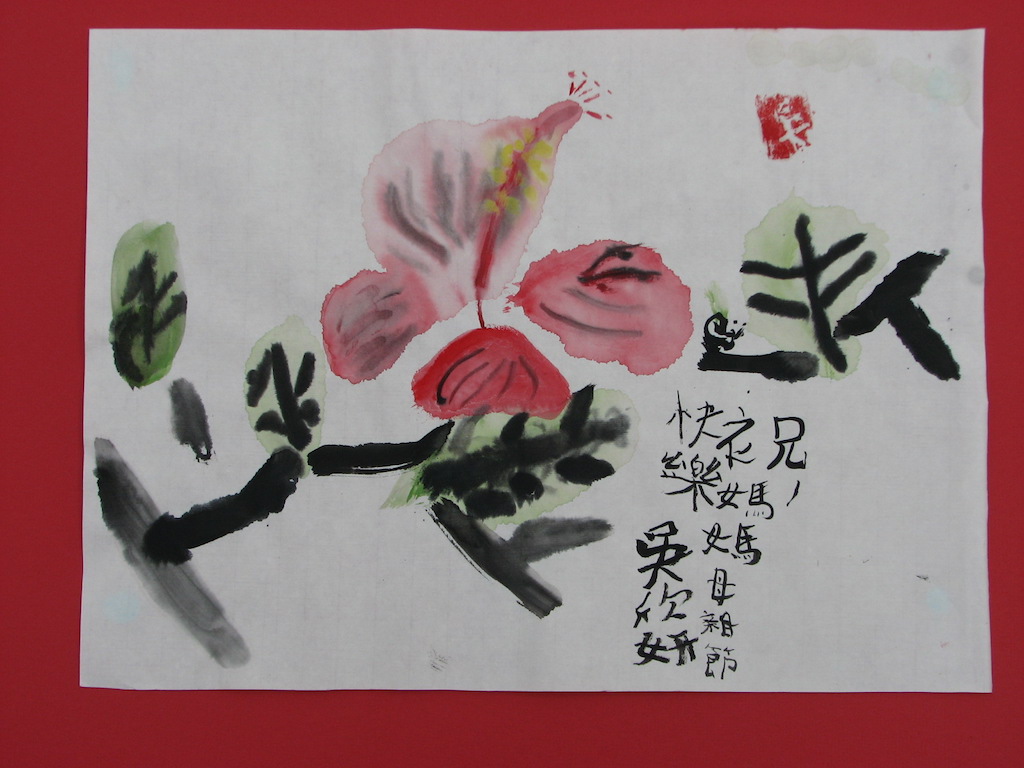 祝，媽媽母親節
快樂
吳欣妍